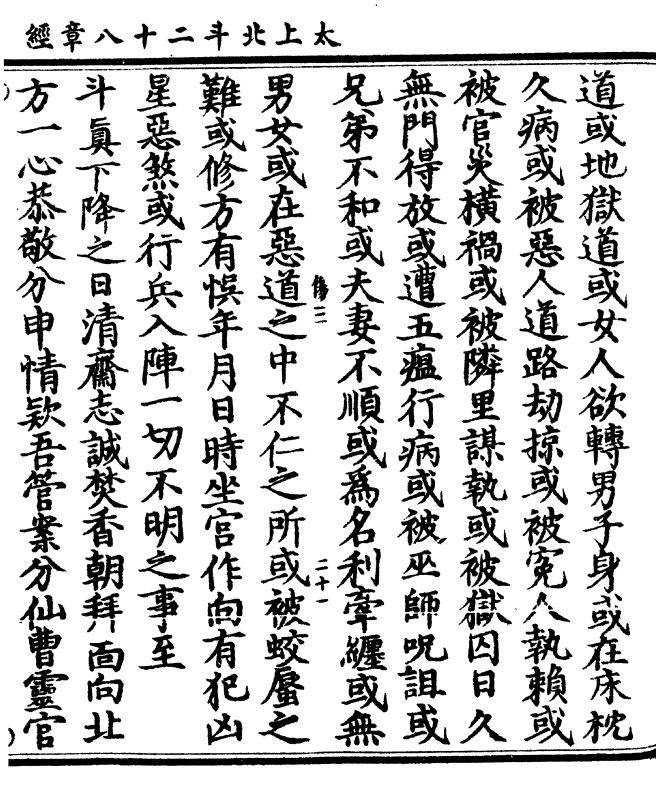 太上北斗二十八章經
道或地獄道或女人欲轉男子身或在床枕
久病或被惡人道路劫掠或被冤人執賴或
被官災橫禍或被隣里謀執或被獄囚日久
無門得放或遭五瘟行病或被巫師呪詛或
兄弟不和或夫妻不順或爲名利牽纏或無
傷二
二十一
男女或在惡道之中不仁之所或被蛟蜃之
難或修方有悞年月日時坐宮作向有犯凶
星惡煞或行兵入陣一切不明之事至
斗眞下降之日清齋志誠焚香朝拜面向北
方一心恭敬分申情欵吾營案分仙曹靈官